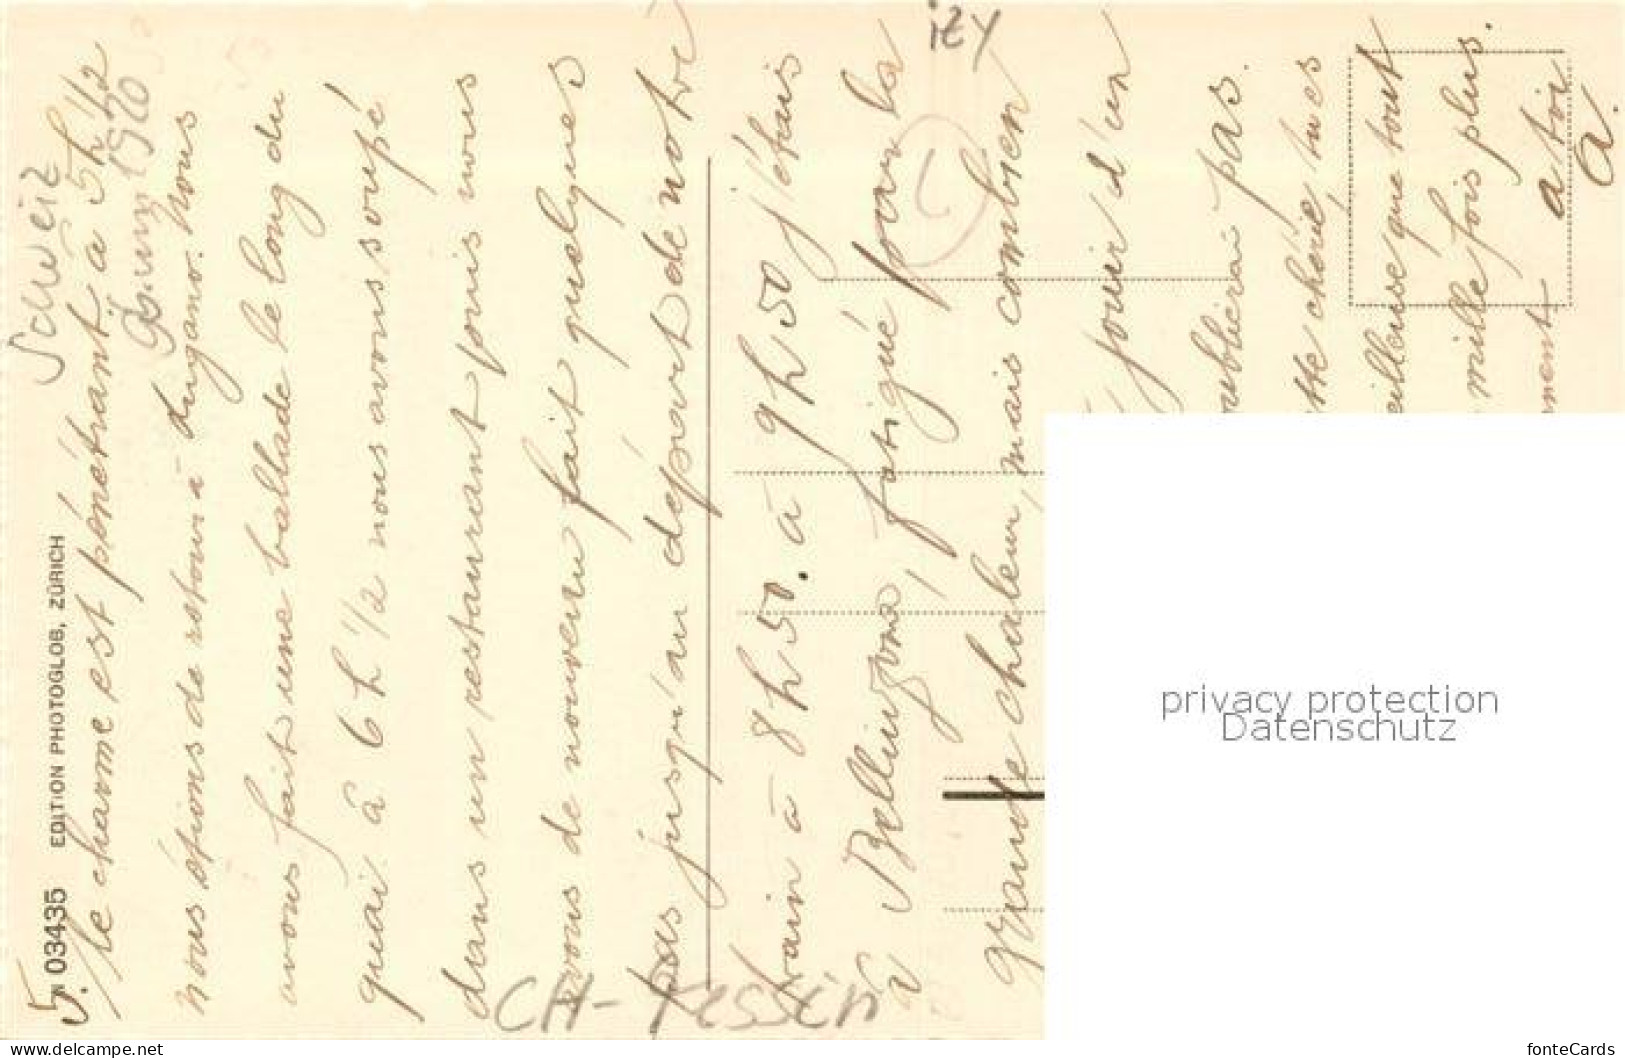 Schweiz
9. Juni 1920
N 03435 EDITION PHOTOGLOB, ZÜRICH
5.
le charme est pénétrant à 5h 1/2
nous étions de retour à Lugano. Nous
avons fait une ballade le long du
quai à 6 h 1/2 nous avons soupé
dans un restaurant puis nous
avons de nouveau fait quelques
pas jusqu'au départ de notre
train à 8h50. à 9h50 j'étais
à Bellinzona, fatigué par la
grande chaleur, mais combien
jouir d'un
oublierai pas.
tte chérie, tu es
eilleuse que tout
mille fois plus.
ment à toi
A.
CH-Tessin
izy
privacy protection
Datenschutz
www.delcampe.net
fonteCards